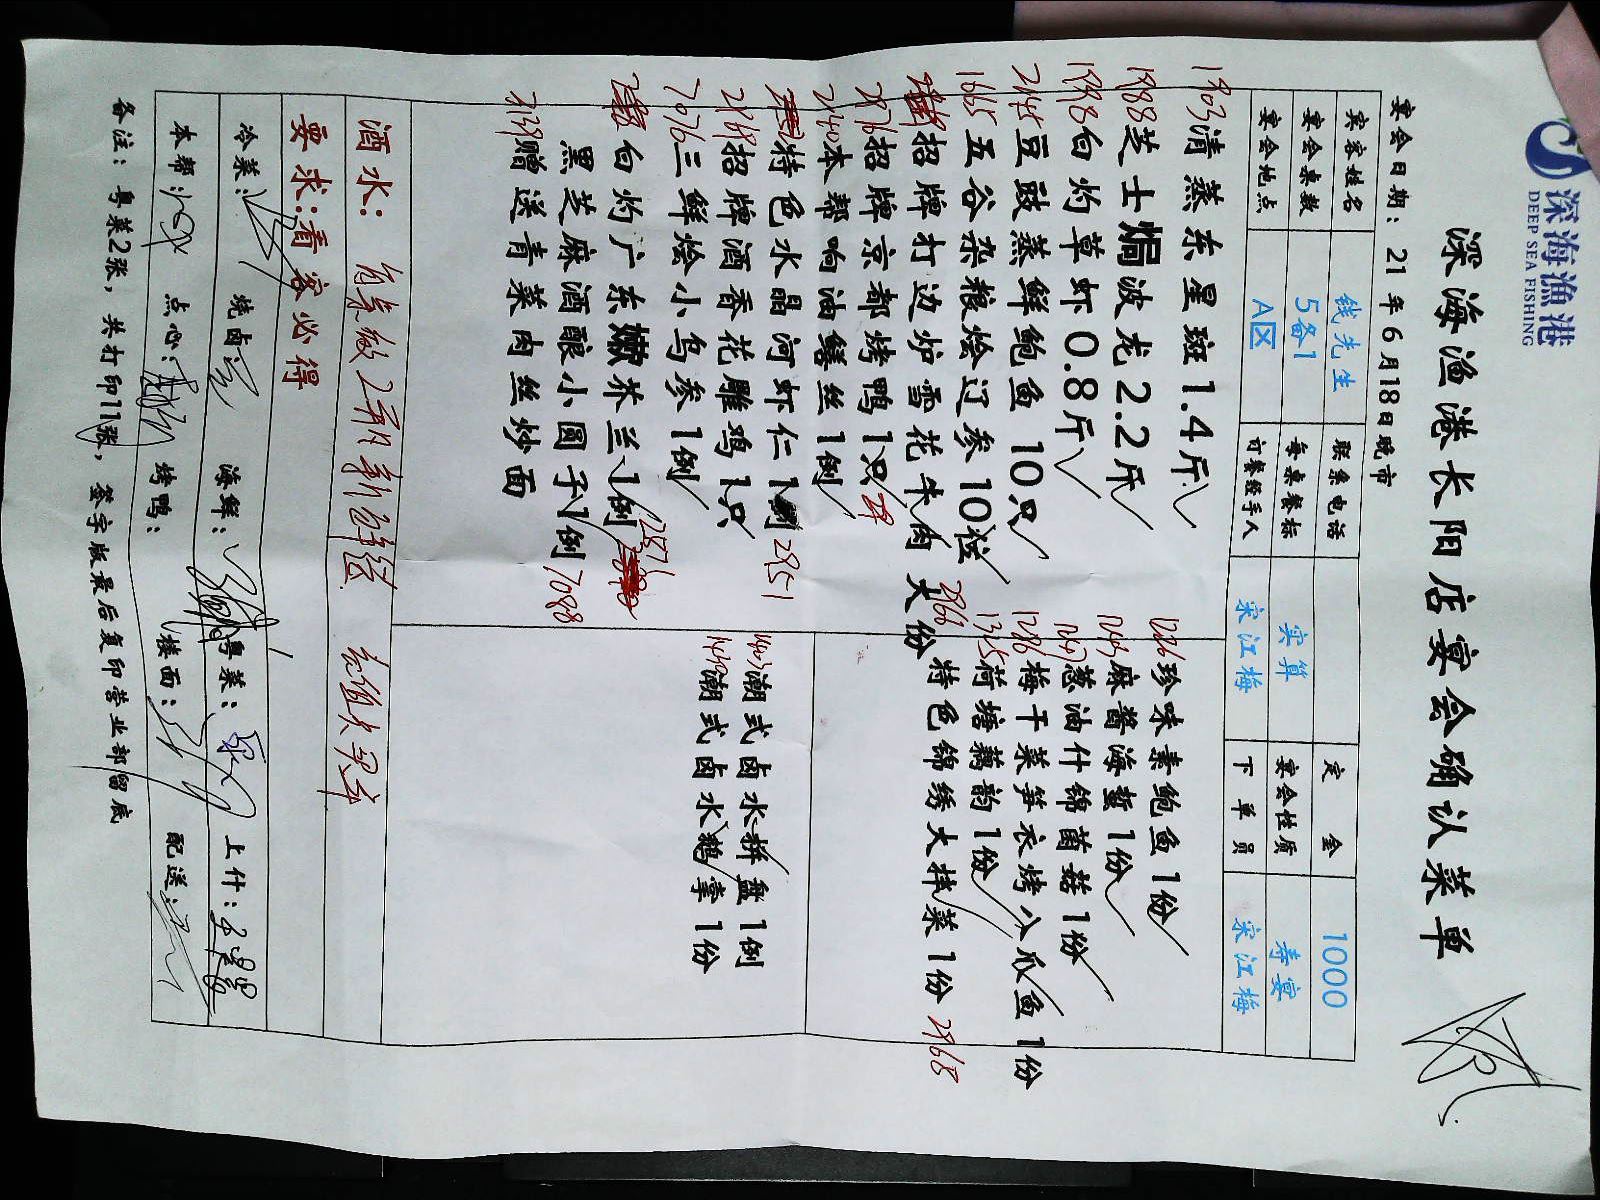 深海漁港
DEEP SEA FISHING
深海渔港长阳店宴会确认菜单
宴会日期：21年6月18日晚市
宾客姓名 钱先生 联系电话 定金 1000
宴会桌数 5备1 每桌餐标 实算 宴会性质 寿宴
宴会地点 A区 订餐经手人 宋江梅 下单员 宋江梅
1903清蒸东星斑1.4斤
1988芝士焗波龙2.2斤
1998白灼草虾0.8斤
2145豆豉蒸鲜鲍鱼 10只
1665五谷杂粮烩辽参10位
招牌打边炉雪花牛肉 大份 2966
2976招牌京都烤鸭1只
2040本帮响油鳝丝1例
特色水晶河虾仁1例 2951
2969招牌酒香花雕鸡1只
7076三鲜烩小乌参1例
白灼广东嫩芥兰1例 2576
黑芝麻酒酿小圆子1例 7088
赠送青菜肉丝炒面
1226珍味素鲍鱼1份
麻酱海蜇1份
葱油什锦菌菇1份
1286梅干菜笋衣烤八爪鱼1份
1325荷塘藕韵1份
特色锦绣大拌菜1份 2968
1403潮式卤水拼盘1例
1430潮式卤水鹅掌1份
酒水：
要求:看客必得
冷菜： 烧卤 海鲜： 粤菜： 上什：
本帮： 点心： 烤鸭： 楼面： 配送：
备注：粤菜2张，共打印11张，签字版最后复印营业部留底